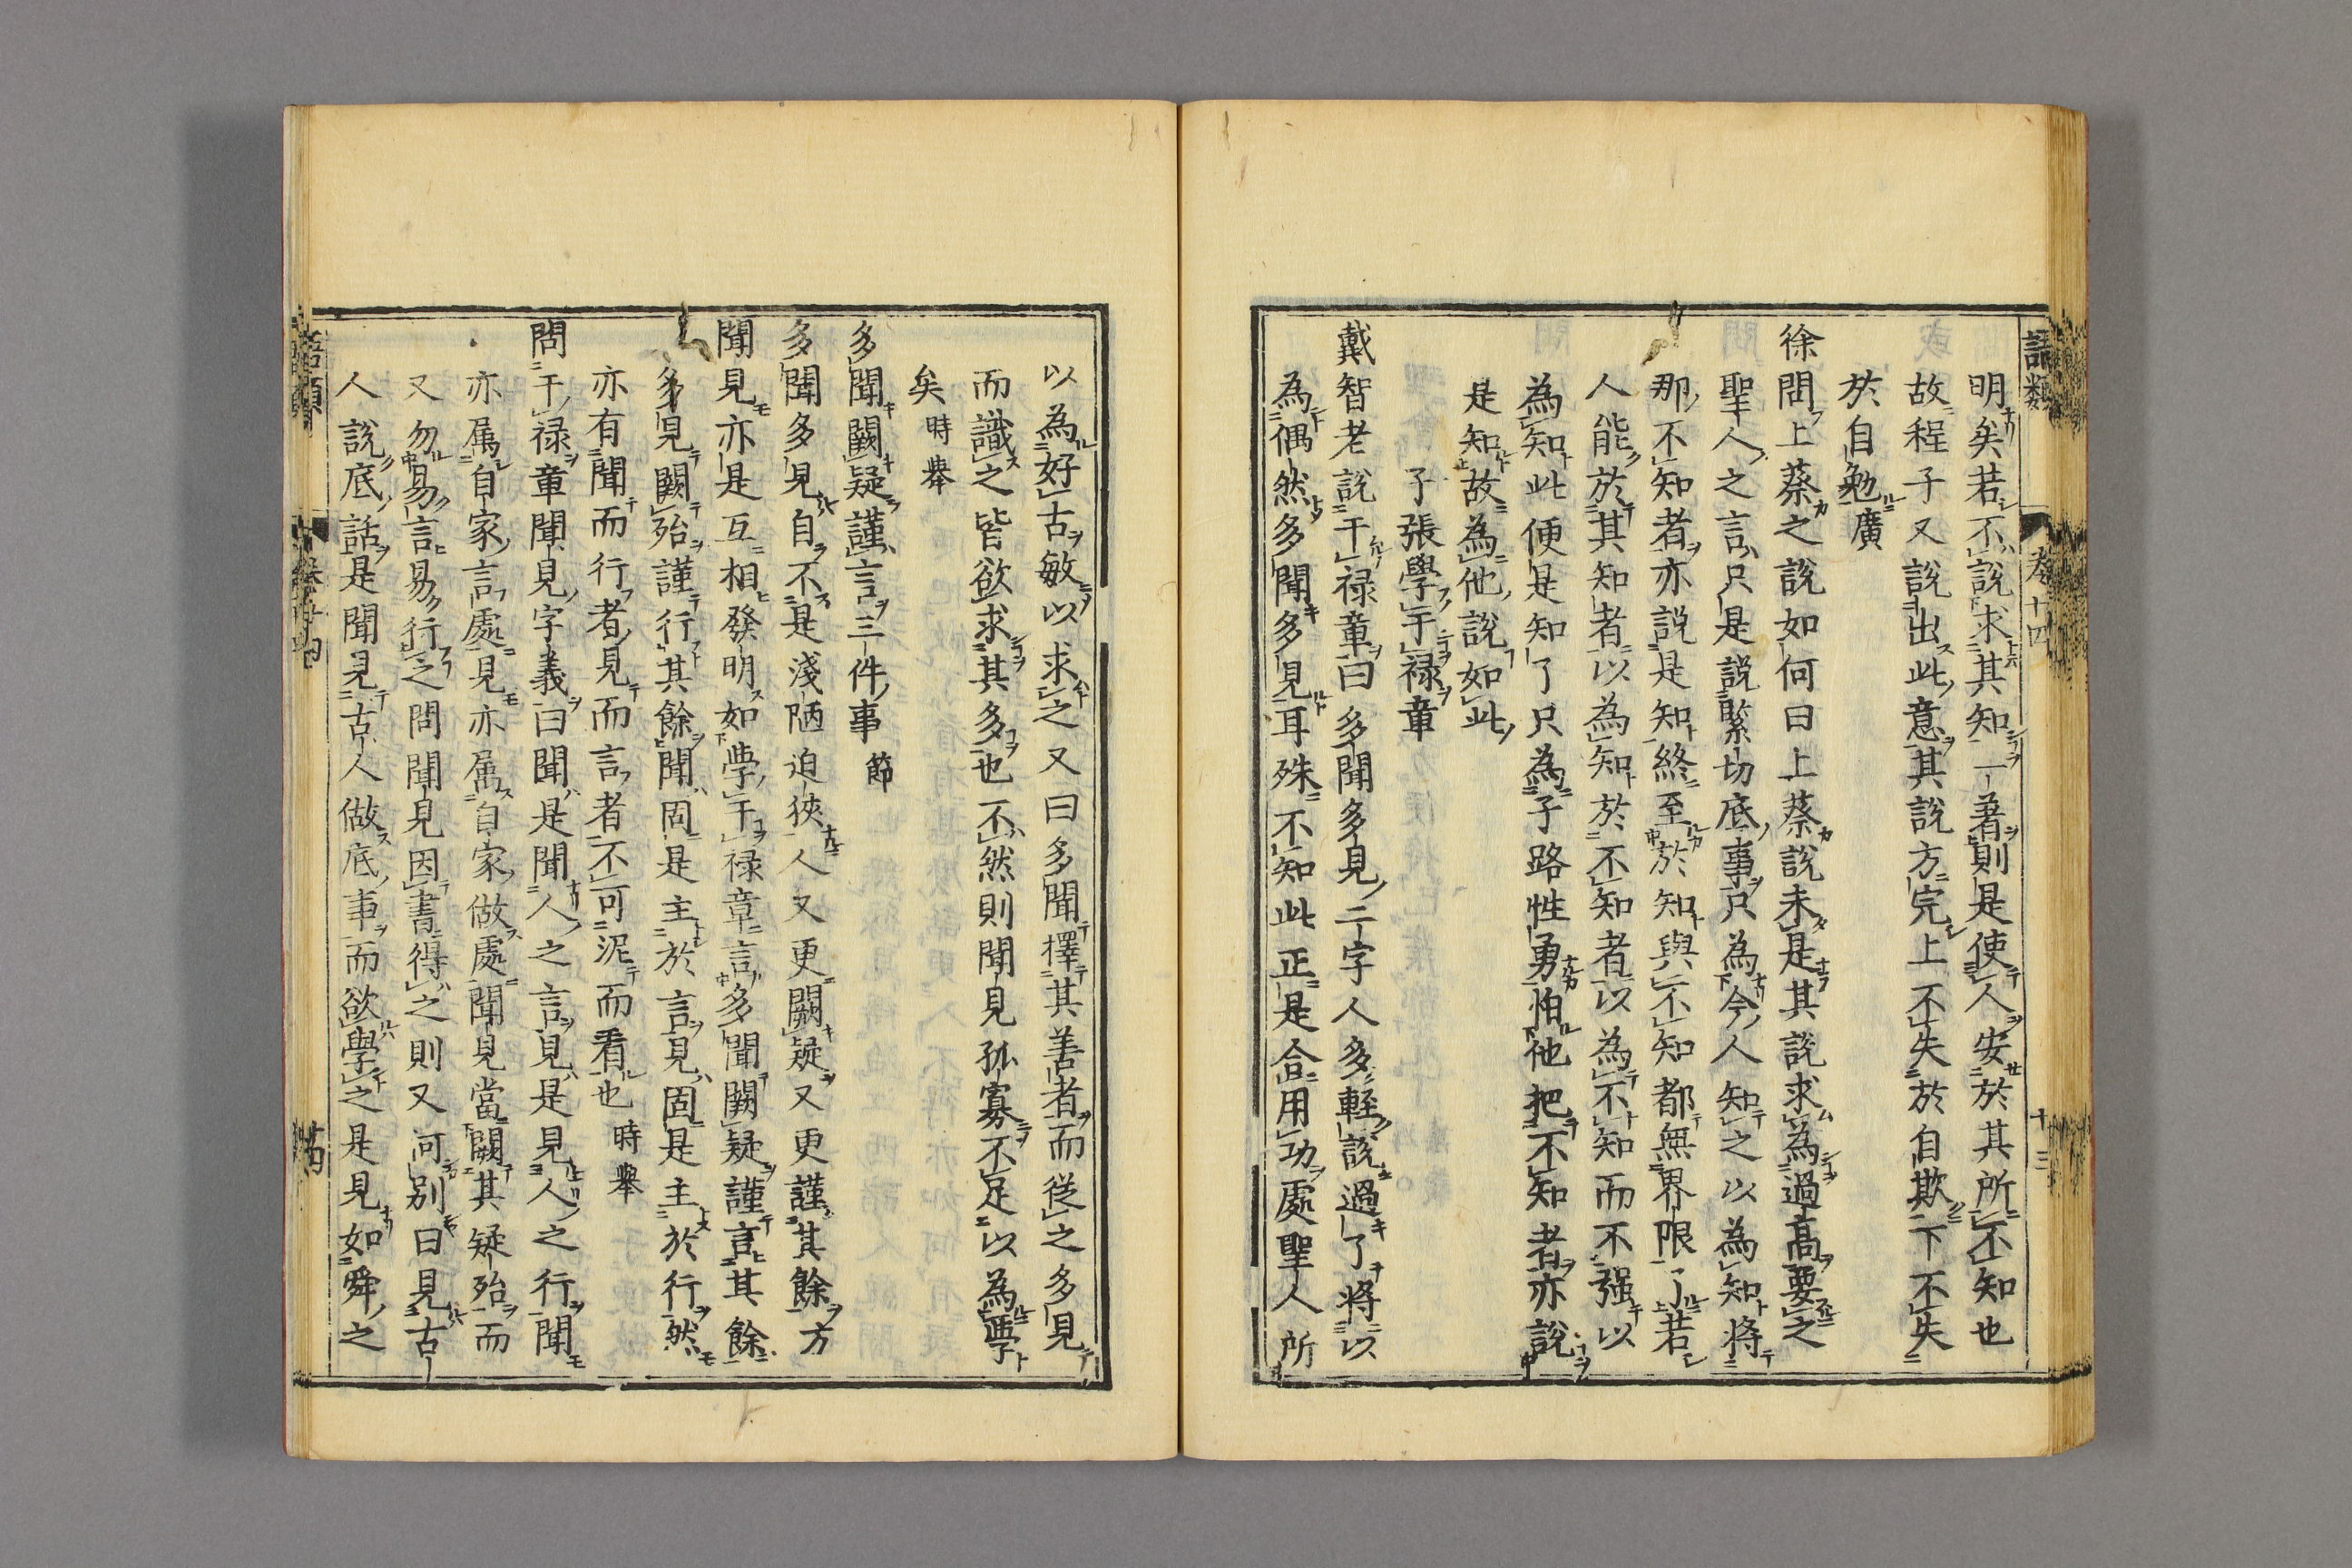 語類 卷十四 十三
明矣若不說求其知一著則是使人安於其所不知也
故程子又說出此意其說方完上不失於自欺下不失
於自勉廣
徐問上蔡之說如何曰上蔡說未是其說求為過高要之
聖人之言只是說緊切底事只為今人知之以為知將
那不知者亦說是知終至於知與不知都無界限了若
人能於其知者以為知於不知者以為不知而不强以
為知此便是知了只為子路性勇怕他把不知者亦說
是知故為他說如此
子張學干祿章
戴智老說干祿章曰多聞多見二字人多輕說過了將以
為偶然多聞多見耳殊不知此正是合用功處聖人所
以為好古敏以求之又曰多聞擇其善者而從之多見
而識之皆欲求其多也不然則聞見孤寡不足以為學
矣時舉
多聞闕疑謹言三件事節
多聞多見自不是淺陋迫狹人又更闕疑又更謹其餘方
聞見亦是互相發明如學干祿章言多聞闕疑謹言其餘
多見闕殆謹行其餘聞固是主於言見固是主於行然
亦有聞而行者見而言者不可泥而看也時舉
問干祿章聞見字義曰聞是聞人之言見是見人之行聞
亦属自家言處見亦属自家做處聞見當闕其疑殆而
又勿易言易行之問聞見因書得之則又可别曰見古
人說底話是聞見古人做底事而欲學之是見如舜之
語類